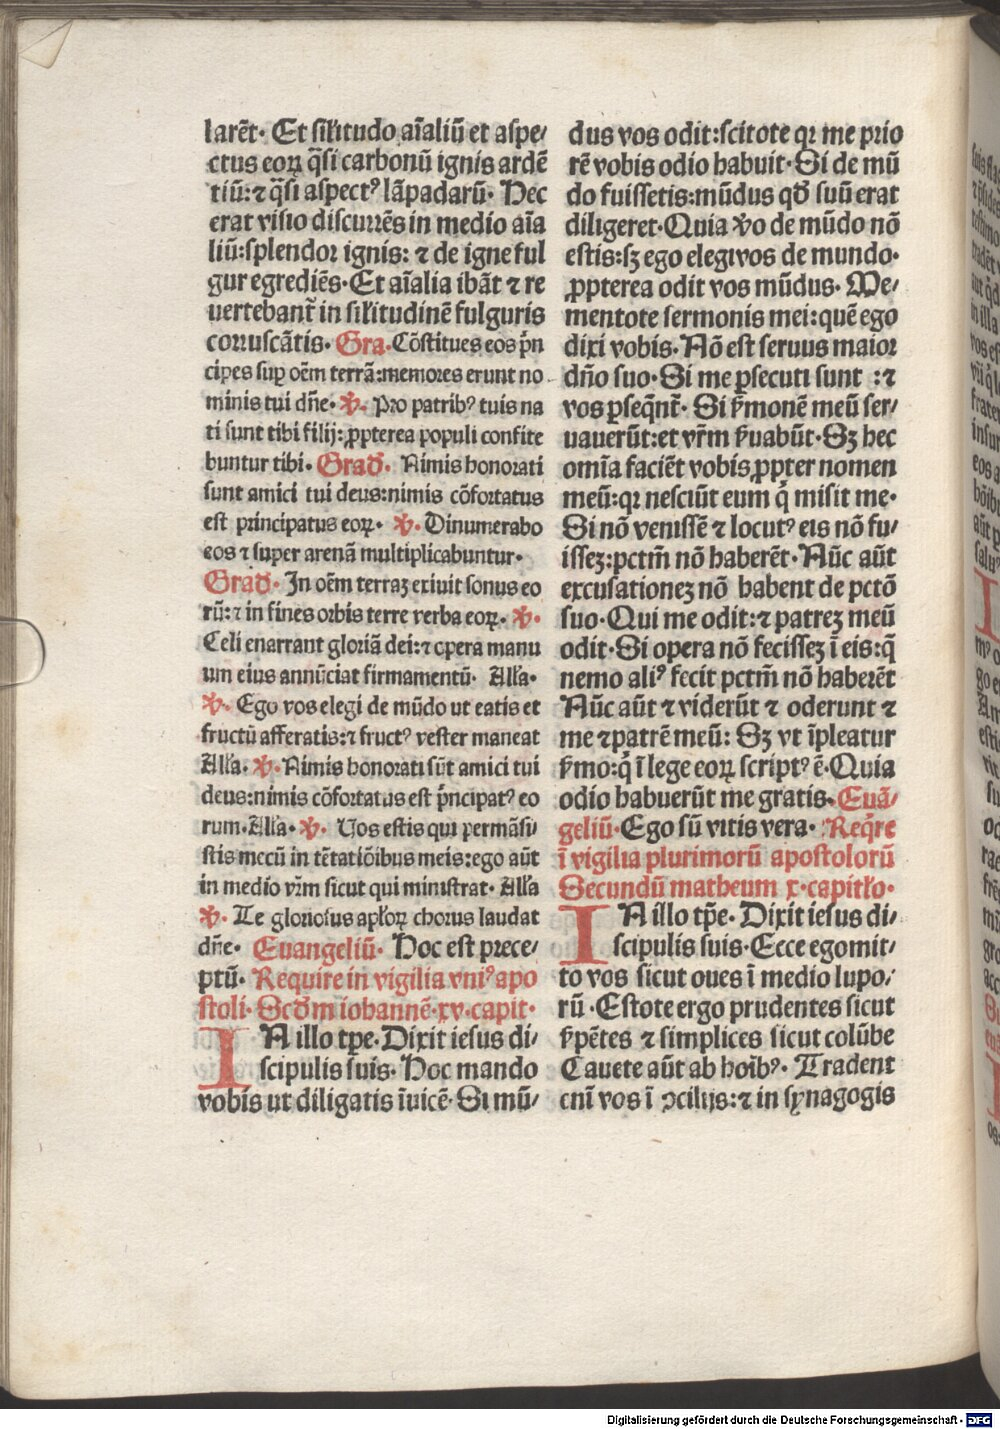 larēt· Et silitudo aīaliū et aspe/
ctus eoꝝ q̄si carbonū ignis ardē
tiū:⁊ q̄si aspectꝰ lāpadarū· Hec
erat visio discurrēs in medio aīa
liū:splendor ignis: ⁊ de igne ful
gur egrediēs·Et aīalia ibāt ⁊ re
uertebant̄ in silitudinē fulguris
corruscātis· Gra·Cōstitues eos p̄n
cipes suꝑ oēm terrā:memores erunt no
minis tui dn̄e· ℣· Pro patribꝰ tuis na
ti sunt tibi filij:ꝓpterea populi confite
buntur tibi· Grad̄· Nimis honorati
sunt amici tui deus:nimis cōfortatus
est principatus eoꝝ· ℣· Dinumerabo
eos ⁊ super arenā multiplicabuntur·
Grad̄· In oēm terraꝫ exiuit sonus eo
rū:⁊ in fines orbis terre verba eoꝝ· ℣·
Celi enarrant gloriā dei:⁊ opera manu
um eius annūciat firmamentū· Alla·
℣· Ego vos elegi de mūdo ut eatis et
fructū afferatis:⁊ fructꝰ vester maneat
Alla· ℣· Nimis honorati sūt amici tui
deus:nimis cōfortatus est p̄ncipatꝰ eo
rum·Alla· ℣· Uos estis qui permāsi/
stis mecū in tētatiōibus meis:ego aūt
in medio vr̄m sicut qui ministrat· Alla
℣· Te gloriosus apl'oꝝ chorus laudat
dn̄e· Euangeliū· Hoc est prece/
ptū· Require in vigilia vniꝰ apo
stoli· Scd̄m iohannē·xv·capit·
IN illo tꝑe·Dixit iesus di/
scipulis suis· Hoc mando
vobis ut diligatis īuicē·Si mū/
dus vos odit:scitote qꝛ me prio
rē vobis odio habuit·Si de mū
do fuissetis:mūdus qd̄ suū erat
diligeret·Quia v̓o de mūdo nō
estis:sꝫ ego elegi vos de mundo·
ꝓpterea odit vos mūdus· Me/
mentote sermonis mei:quē ego
dixi vobis·Nō est seruus maior
dn̄o suo·Si me ꝑsecuti sunt :⁊
vos ꝑseq̄nt̄· Si ẜmonē meū ser/
uauerūt:et vr̄m ẜuabūt·Sꝫ hec
omīa faciēt vobis ꝓpter nomen
meū:qꝛ nesciūt eum q̇ misit me·
Si nō venissē ⁊ locutꝰ eis nō fu/
isseꝫ:pctm̄ nō haberēt·Nūc aūt
excusationeꝫ nō habent de pctō
suo·Qui me odit:⁊ patreꝫ meū
odit·Si opera nō fecisseꝫ ī eis:q̄
nemo aliꝰ fecit pctm̄ nō haberēt
Nūc aūt ⁊ viderūt ⁊ oderunt ⁊
me ⁊patrē meū: Sꝫ vt īpleatur
ẜmo:q̇ ī lege eoꝝ scriptꝰ ē·Quia
odio habuerūt me gratis· Euā/
geliū·Ego sū vitis vera· Req̄re
ī vigilia plurimorū apostolorū
Secundū matheum x·capitło·
IN illo tꝑe· Dixit iesus di/
scipulis suis·Ecce ego mit/
to vos sicut oues ī medio lupo/
rū·Estote ergo prudentes sicut
ẜpētes ⁊ simplices sicut colūbe
Cauete aūt ab hoībꝰ· Tradent
enī vos ī ꝯcilijs:⁊ in synagogis
Digitalisierung gefördert durch die Deutsche Forschungsgemeinschaft - DFG